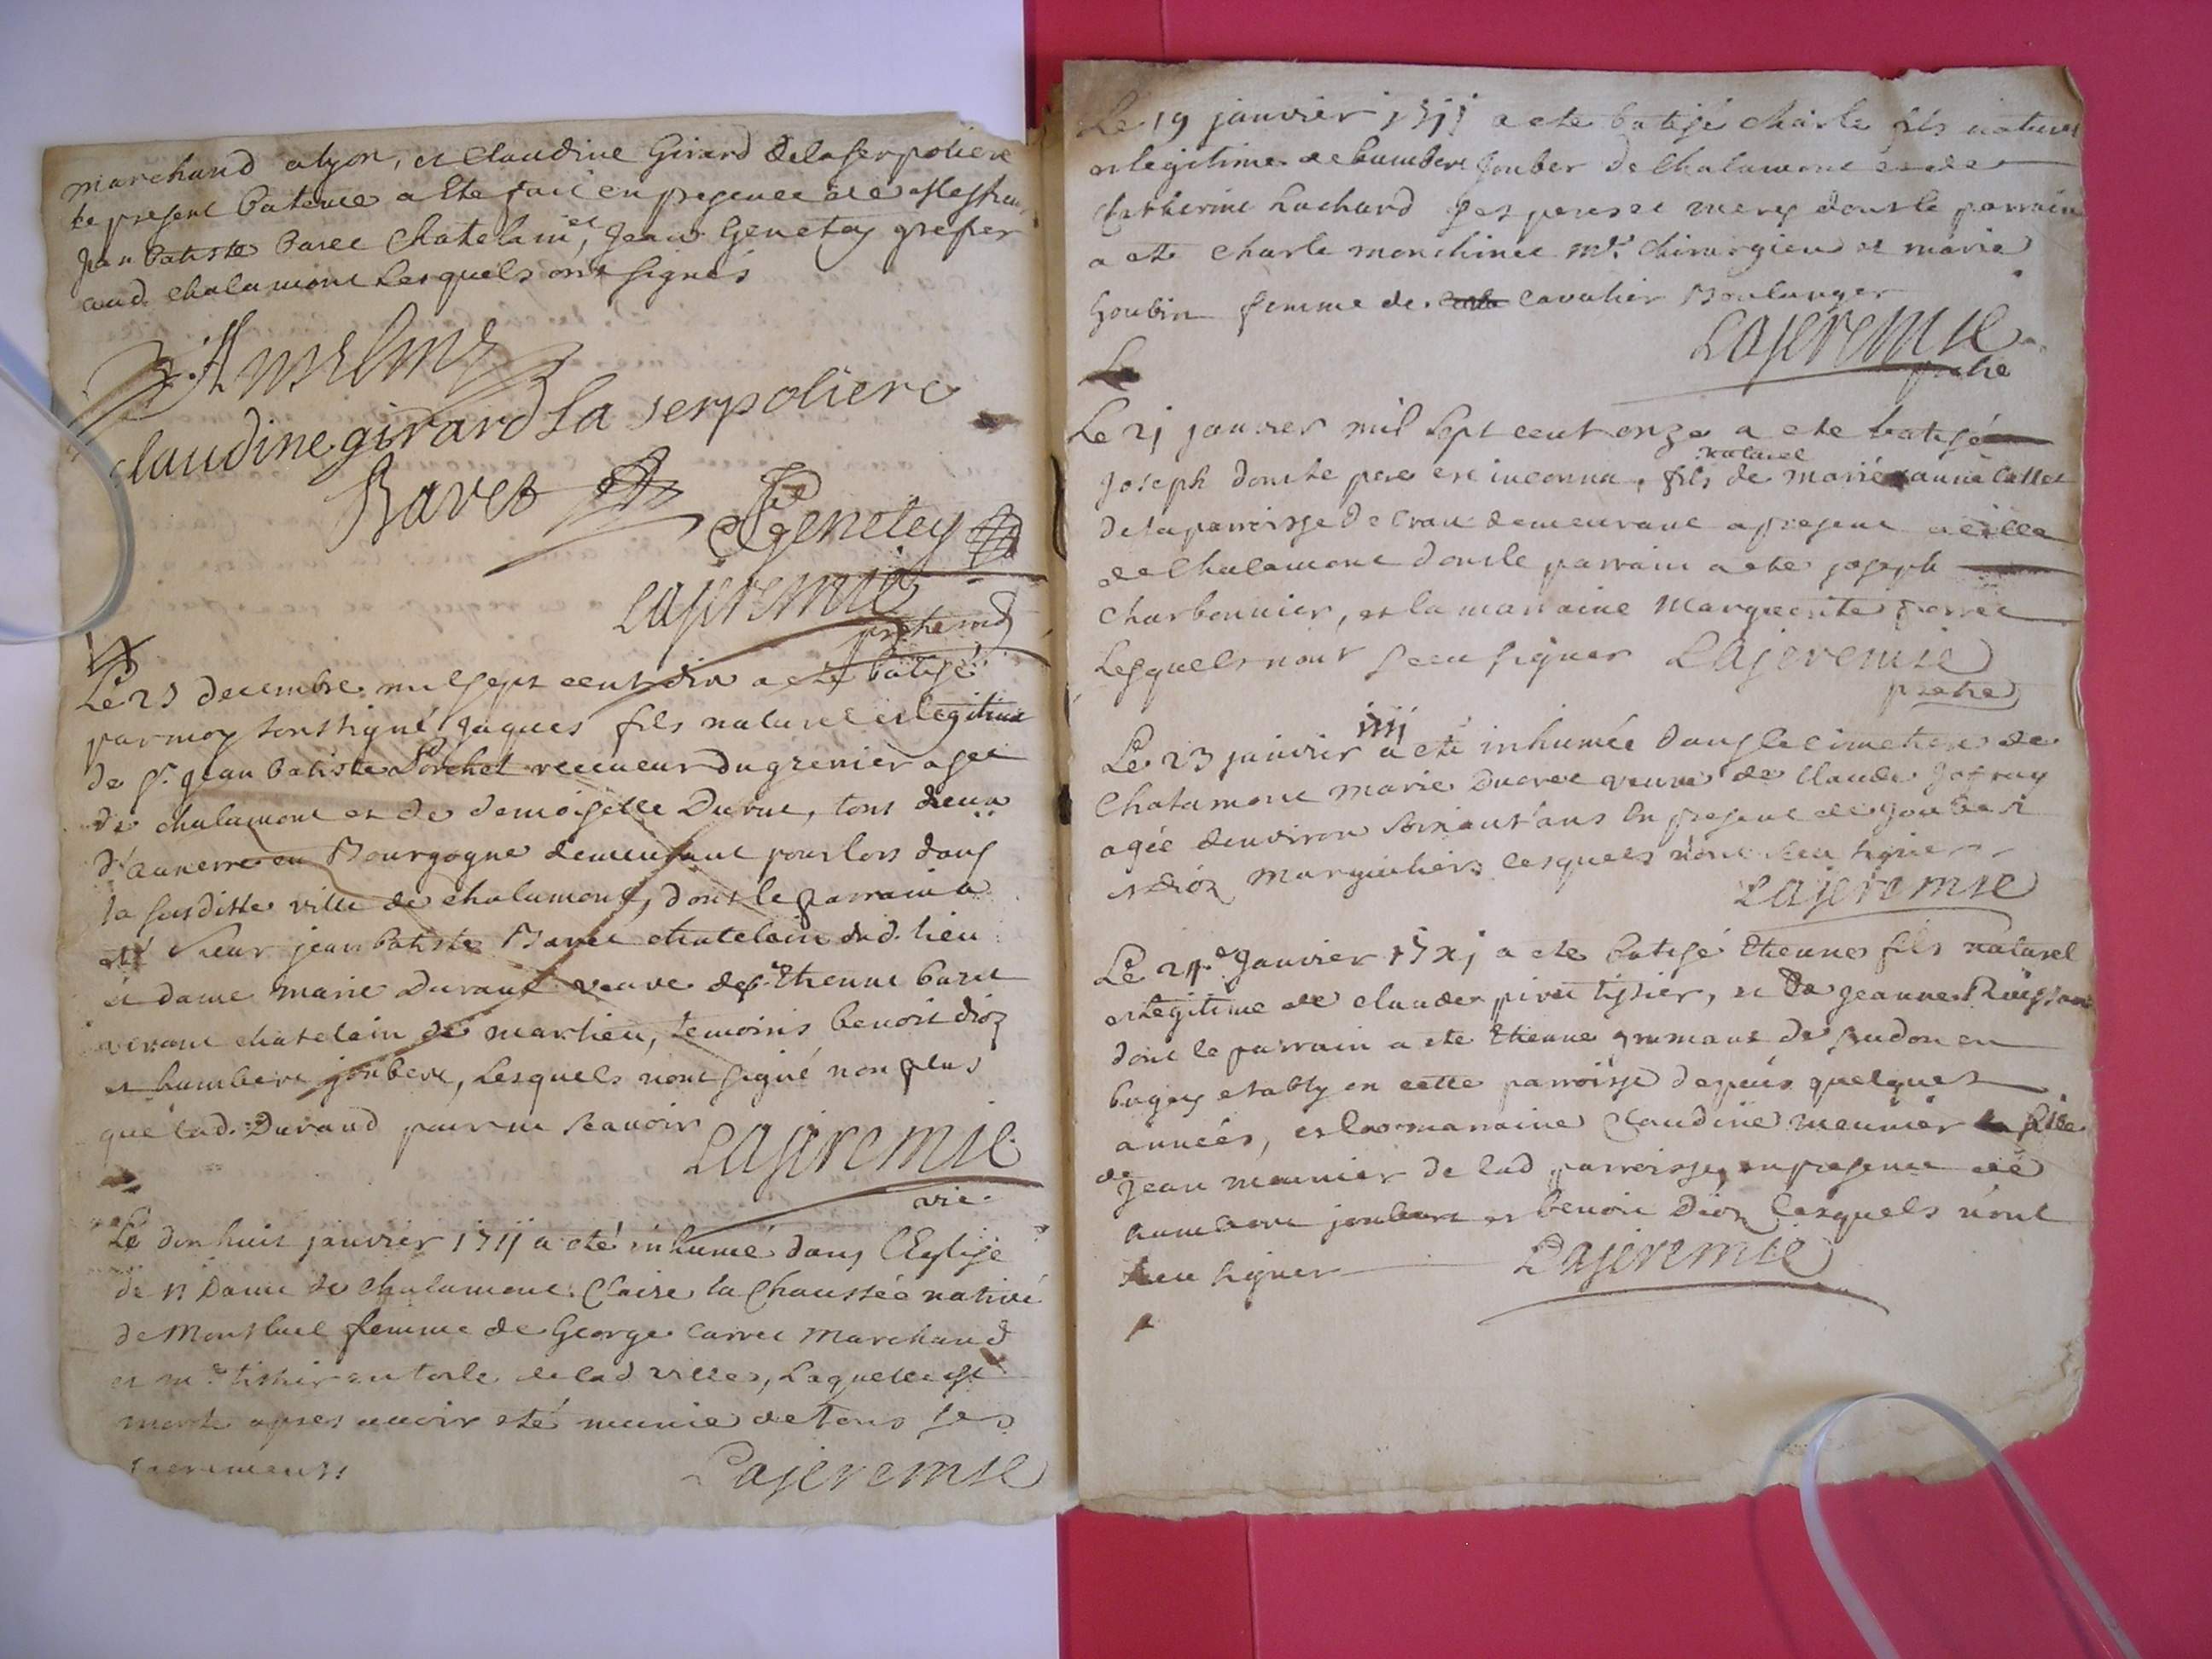 marchand alyon, et Claudine Girard delaserpoliere
le present bateme a ete fait en presence de
Jean batiste baret Chatelain et, Jean Genetey grefier
aud. chalamont Lesquels ont signés
Anselme
claudine girard La serpoliere
Baret
Genetey
Lajeremie
pretre
Le 25 decembre mil sept cent dix a ete batisé
par moy soussigné Jaques fils naturel et legitime
de Sr. Jean batiste Porchet receveur du grenier a sel
de chalamont et de demoiselle Durue, tous deux
d'auxerre en Bourgogne demeurant pour lors dans
la susditte ville de chalamont, dont le parrain a
eté sieur jean batiste Baret chatelain dud. lieu
et dame marie Durand veuve de Sr Etienne baret
vivant chatelain de marlieu, temoins benoit dioz
et humbert joubert, Lesquels n'ont signé non plus
que lad. Durand pour ne scavoir Lajeremie
vic.
Le dix huit janvier 1711 a eté inhumé dans l'Eglise
de N Dame de chalamont Claire la Chaussée native
de Montluel femme de George Carret Marchand
et me tissier en toile de lad ville, Laquelle est
morte apres avoir eté munie de tous ses
sacrements Lajeremie
Le 19 janvier 1711 a ete batisé Charle fils naturel
et legitime de humbert Joubert de Chalamont et de
Catherine Lachard ses pere et mere dont le parrain
a ete Charle monchinet mtre Chirurgien et marie
Goubin femme de cavalier Boulanger
Lajeremie
pretre
Le
Le 21 janvier mil sept cent onze a ete batisé
naturel
Joseph dont le pere est inconnu, fils de marie anne
de la parroisse de Cran demeurant a present a ville
de Chalamont dont le parrain a ete joseph
Charbonnier, et la marraine Marguerite
Lesquels n'ont sceu signer Lajeremie
pretre
1711
Le 23 janvier a eté inhumée dans le cimetiere de
Chalamont marie Ducret veuve de Claude Jofray
agée d'environ soixant'ans en presence de Joubert
et dioz marguilliers lesquels n'ont sceu signer
Lajeremie
Le 24e Janvier 17xj a ete batisé Etienne fils naturel
et legitime de claude tissier, et de jeanne
dont le parrain a ete Etienne grumant de en
bugey etably en cette parroisse depuis quelques
années, et la marraine Claudine meunier fille
de Jean meunier de lad parroisse, en presence de
humbert joubert et benoit dioz lesquels n'ont
sceu signer Lajeremie